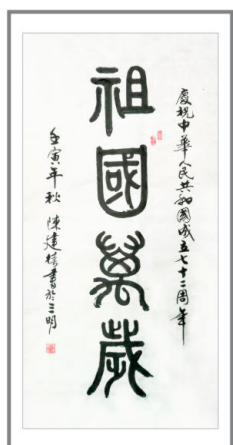 慶祝中華人民共和國成立七十二周年
祖國萬歲
壬寅年秋 陳建書於三明